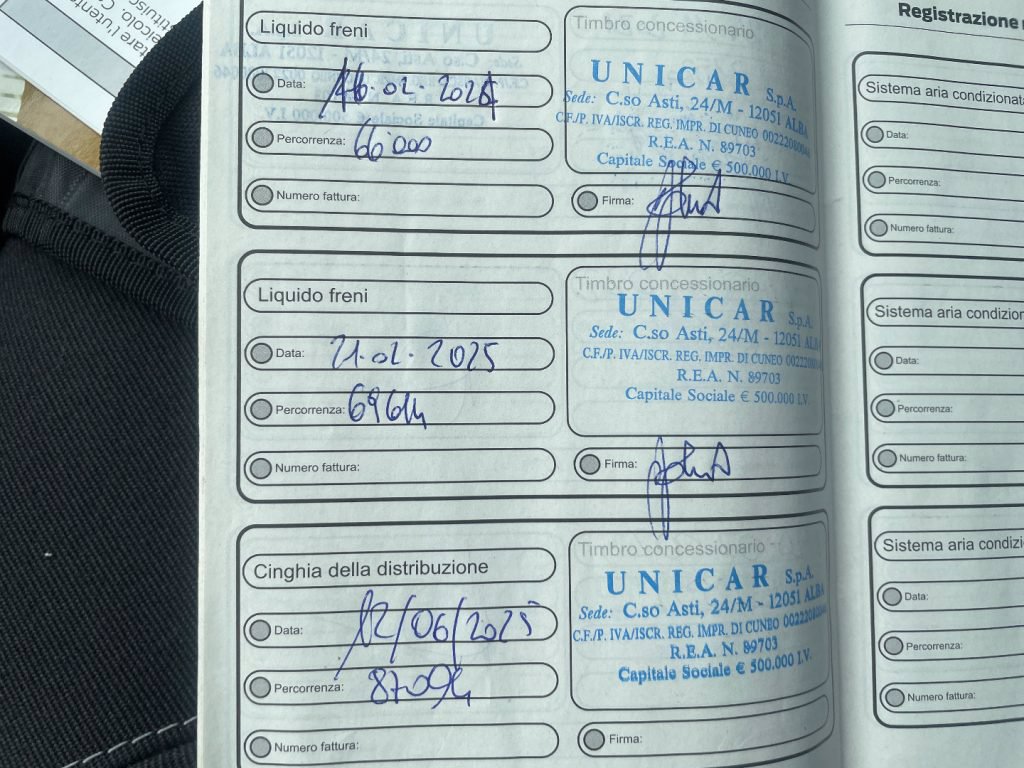 Liquido freni
Timbro concessionario
Data: 16.02.2025
UNICAR S.p.A.
Sede: C.so Asti, 24/M - 12051 ALBA
C.F./P. IVA/ISCR. REG. IMPR. DI CUNEO
R.E.A. N. 89703
Capitale Sociale € 500.000 I.V.
Percorrenza: 66000
Numero fattura:
Firma:
Liquido freni
Timbro concessionario
UNICAR S.p.A.
Sede: C.so Asti, 24/M - 12051 ALBA
C.F./P. IVA/ISCR. REG. IMPR. DI CUNEO
R.E.A. N. 89703
Capitale Sociale € 500.000 I.V.
Data: 21.02.2025
Percorrenza:
Numero fattura:
Firma:
Cinghia della distribuzione
Timbro concessionario
UNICAR S.p.A.
Sede: C.so Asti, 24/M - 12051 ALBA
C.F./P. IVA/ISCR. REG. IMPR. DI CUNEO
R.E.A. N. 89703
Capitale Sociale € 500.000 I.V.
Data: 12/06/2025
Percorrenza: 87094
Numero fattura:
Firma:
Registrazione
Sistema aria condizionata
Data:
Percorrenza:
Numero fattura:
Sistema aria
Data:
Percorrenza:
Numero fattura:
Sistema aria
Data:
Percorrenza:
Numero fattura: